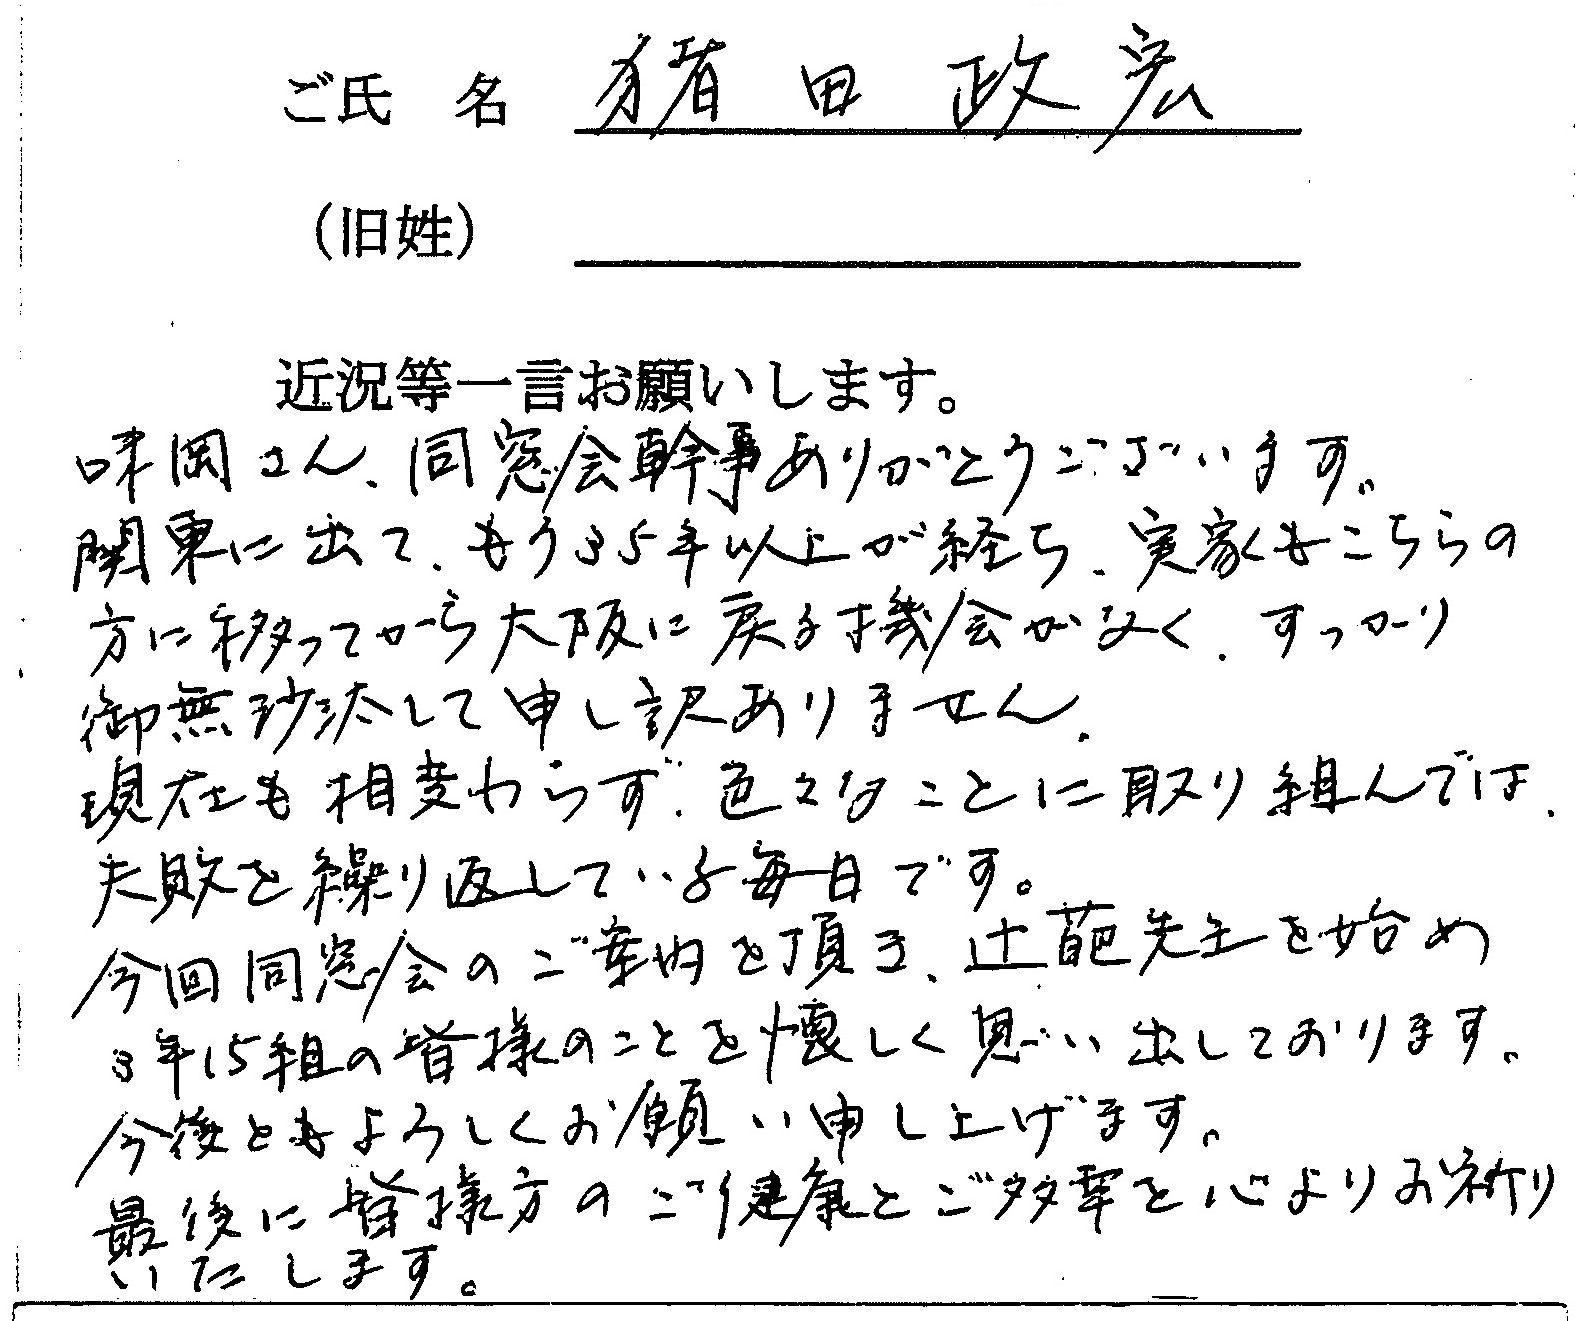 ご氏 名 猪田 政宏
(旧姓)
近況等一言お願いします。
味岡さん、同窓会幹事ありがとうございます。
関東に出て、もう35年以上が経ち、実家もこちらの
方に移ってから大阪に戻る機会がなく、すっかり
御無沙汰して申し訳ありません。
現在も相変わらず、色々なことに取り組んでは、
失敗を繰り返している毎日です。
今回同窓会のご案内を頂き、辻葩先生を始め
3年15組の皆様のことを懐しく思い出しております。
今後ともよろしくお願い申し上げます。
最後に皆様方のご健康とご多幸を心よりお祈り
いたします。